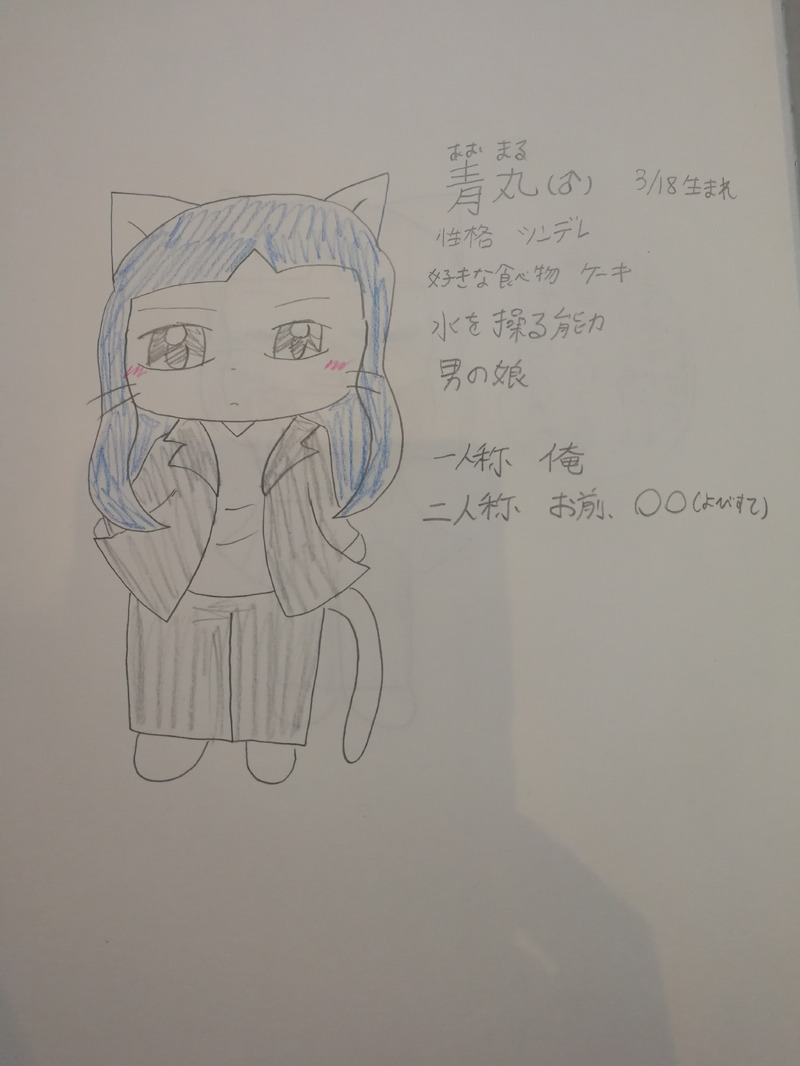 あお まる
青丸(♂) 3/18生まれ
性格 ツンデレ
好きな食べ物 ケーキ
水を操る能力
男の娘
一人称 俺
二人称 お前、〇〇(よびすて)